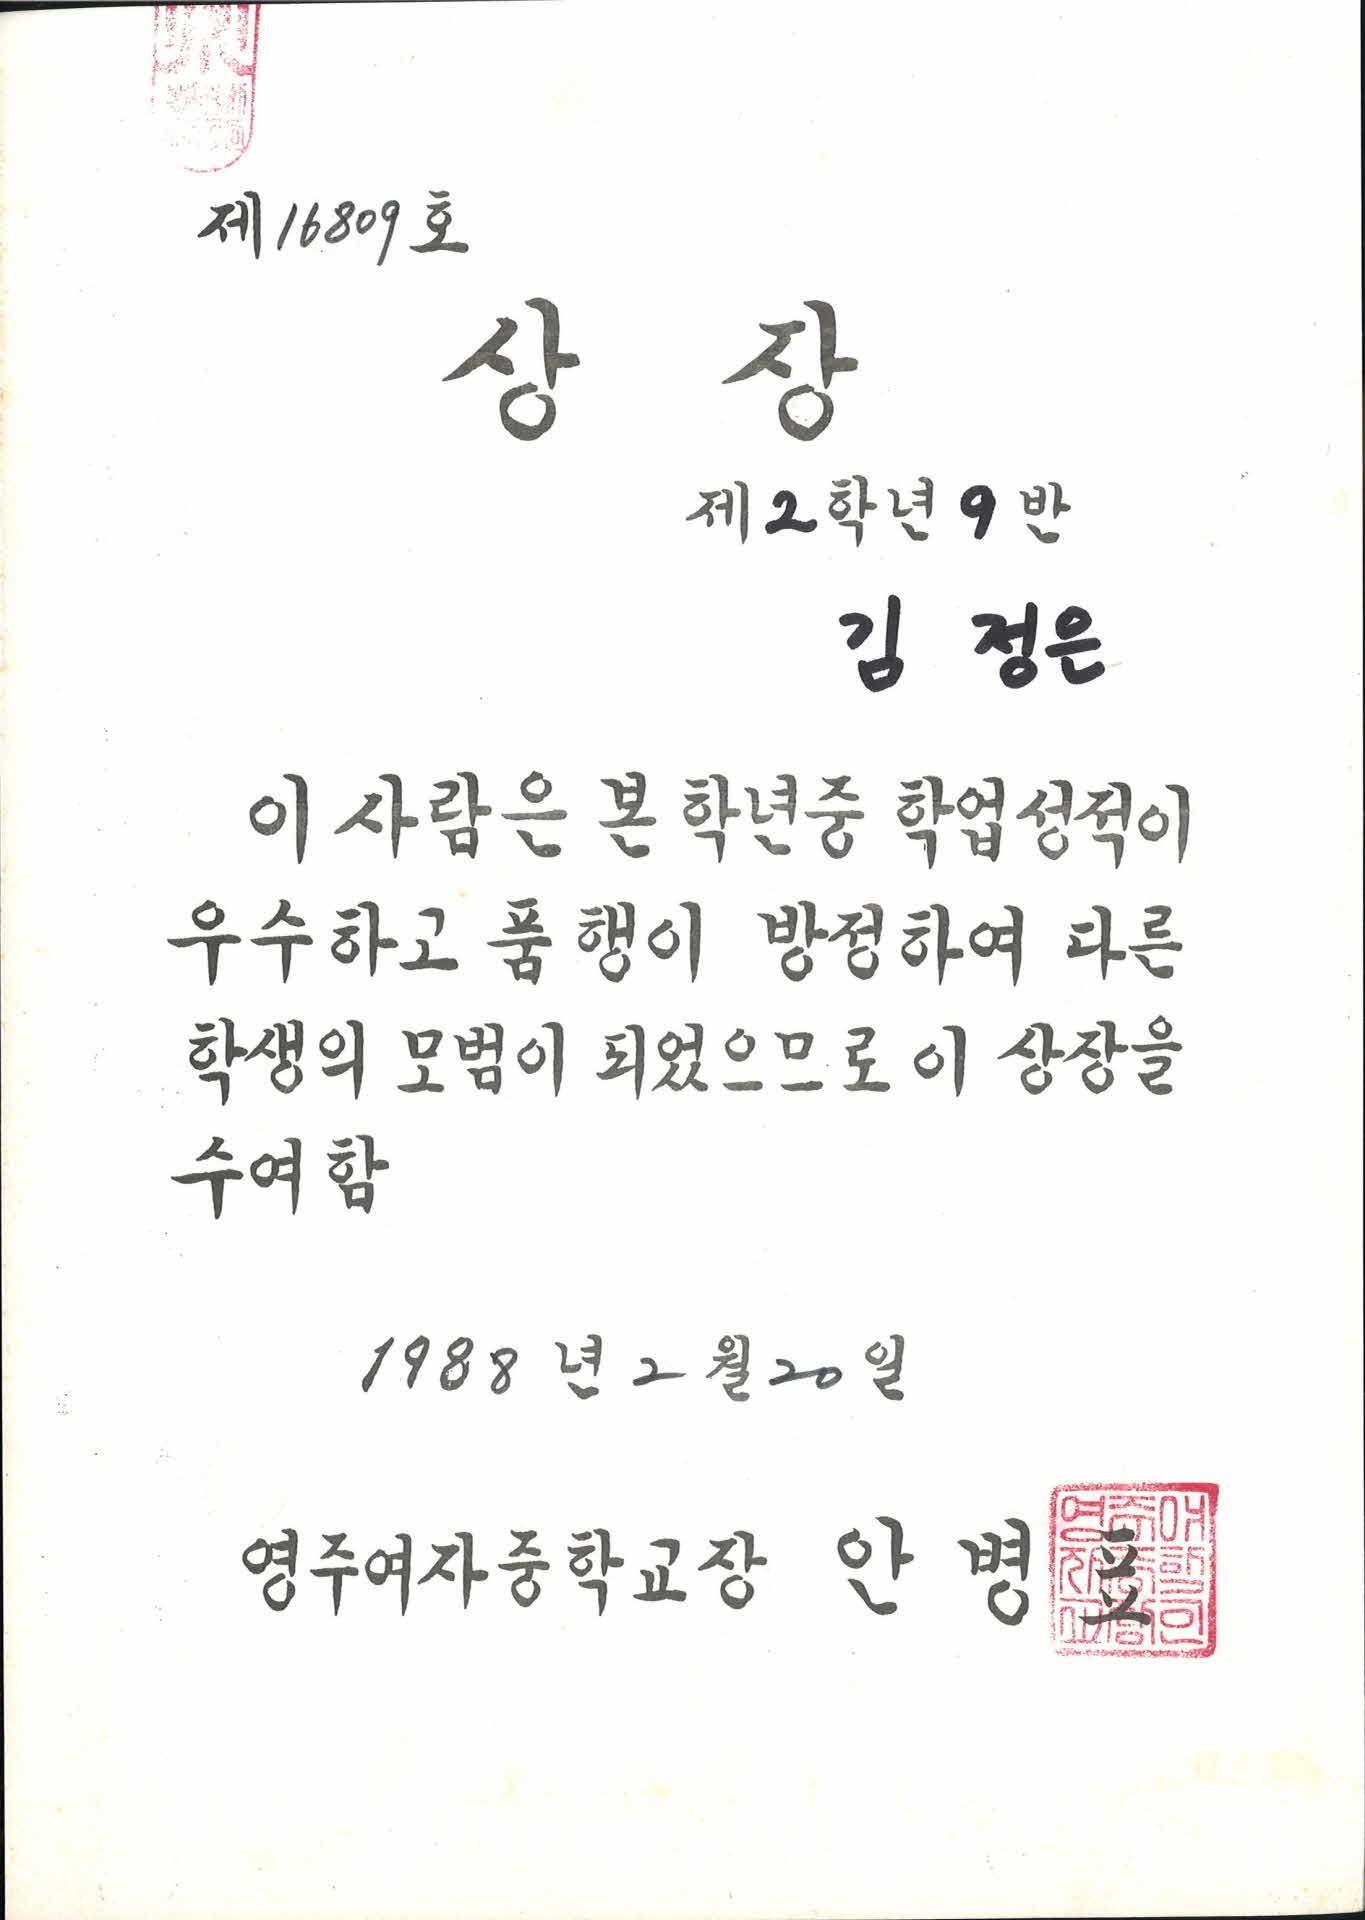 제16809호
상 장
제2학년9반
김 정은
이 사람은 본 학년중 학업성적이
우수하고 품행이 방정하여 다른
학생의 모범이 되었으므로 이 상장을
수여함
1988년 2월 20일
영주여자중학교장 안 병 표